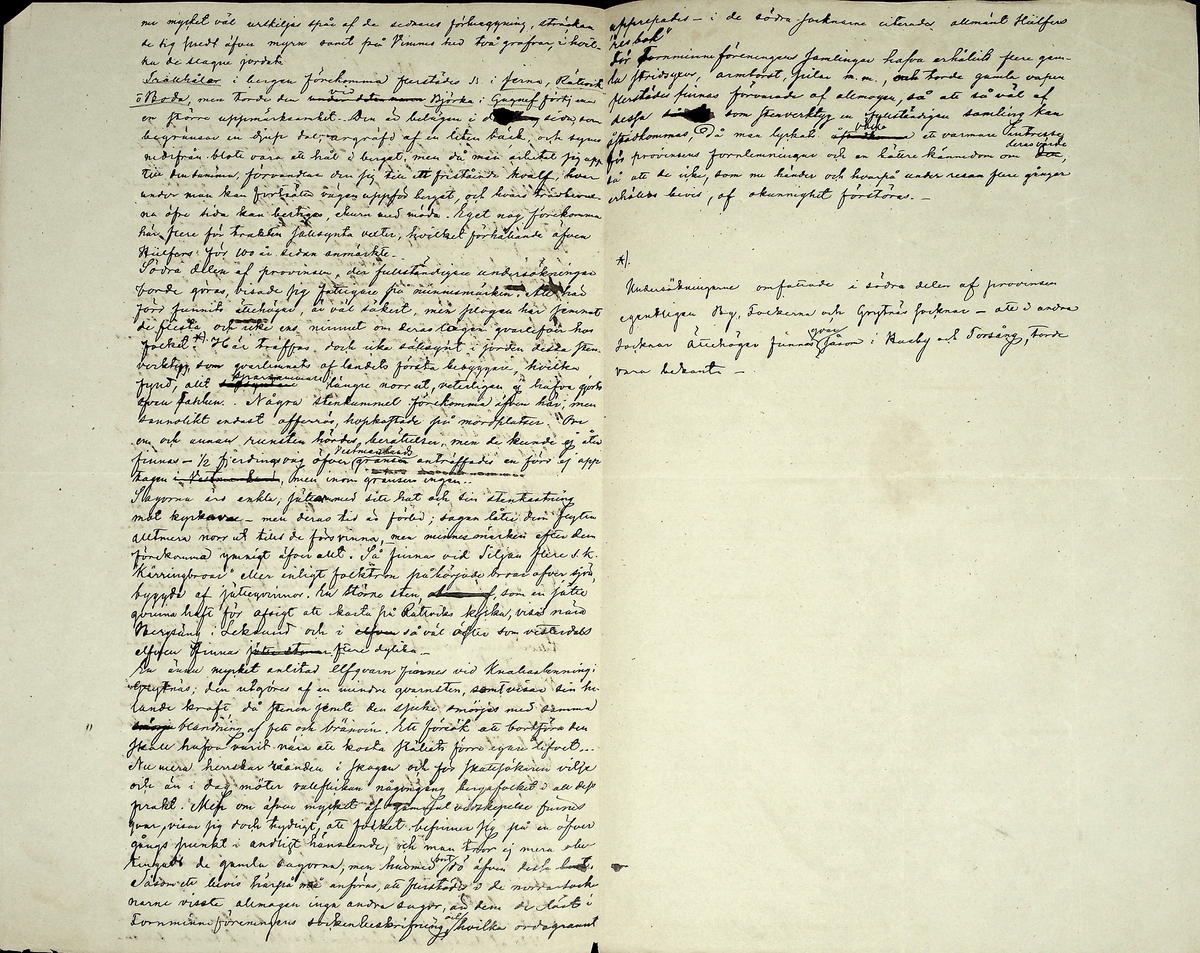 nu mycket väl urskiljes spår af de sednares förskansning, sträckan
de sig fredt äfven myrn samt på Vimmes hed två grafvar, i hvil-
ka de slagne jordats
i bergen förekomma flerstädes ss i Jerna, Rättvik
o Boda, men torde den vid Björka i Gagnef förtjena
en större uppmärksamhet. Den är belägen i sidan som
begränsar en djup dal utgräfd af en liten bäck, och synes
nedifrån blott vara ett hål i berget, men då man arbetat sig upp
till densamma, förvandlar den sig till ett fristående hvalf, hvar
under man kan fortsätta vägen uppför berget, och hvars
na öfre sida kan bestigas, ehuru med möda. Eget nog förekomma
här flere för trakten sällsynta vexter, hvilket förhållande äfven
Hülfers för 100 år sedan anmärkte.
Södra delen af provinsen, der fullständigare undersökningar
borde göras, visade sig fattigare på minnesmärken. Att här
förr funnits ättehögar, är väl säkert, men plogen har jemnat
de flesta och icke ens minnet om deras lägen qvarlefver hos
folket *). Här träffas doch icke sällsynt i jorden dessa sten
verktyg, som qvarlemnats af landets första bebyggare, hvilka
fynd, allt sparsammare längre norr ut, veterligen ej hafva gjorts
ofvan Fahlun. Några stenkummel förekomma äfven här, men
sannolikt endast offerrös, hopkastade på mordplatser. Om
en och annan runsten hördes berättelser, men de kunde ej åter
finnas – 1/2 fjerdingsväg öfver Vestmanlands gränsen anträffades en förr ej upp
tagen, men inom gränsen ingen.
Sagorna äro enkla; jätten med sitt hat och sin stenkastning
mot kyrkorna – men deras tid är förbi; sagan låter dem flytta
alltmera norr ut tills de försvinna, men minnesmärken efter dem
förekomma ymnigt öfver allt. Så finnas vid Siljan flere s.k.
Kärringbroar eller enligt folktron påbörjade broar öfver sjön,
byggda af jätteqvinnor. En större sten, som en jätte
qvinna haft för afsigt att kasta på Rättviks kyrka, visas nära
Bergsäng i Leksand och i så väl öster som vesterdals
elfven finnas flere dylika –
En ännu mycket anlitad Elfqvarn finnes vid Knallasbenning i
Grytnäs; den utgöres af en mindre qvarnsten, samt visar sin he-
lande kraft då stenen jemte den sjuke smörjes med samma
blandning af fett och bränvin. Ett försök att bortföra den
skulle hafva varit nära att kosta ställets förre egare lifvet...
Nu mera herrskar råanden i skogen och för skattsökaren vilse
och än i dag möter vallflickan någongång bergafolket i all dess
prakt. Men om äfven mycket af gammal vidskepelse finnes
qvar, visar sig doch tydligt, att folket befinner sig på en öfver
gångs punkt i andligt hänseende, och man tror ej mera obe
tingadt de gamla sagorna, men hudmed dö äfven dessa bort.
Såsom ett bevis härpå må anföras, att flerstädes i de norra sock
narne visste allmogen inga andra sagor, än dem de läst i
Fornminneföreningens sockenbeskrifning, och hvilka ordagrannt
upprepades – i de södra socknarne citerades allmänt Hülfers
"resbok"
För Fornminneföreningens Samlingar hafva erhållits flere gam-
la stridsyxor, armborst, pilar m.m., och torde gamla vapen
flerstädes finnas förvarade af allmogen, så att så väl af
dessa som stenverktyg en fullständigare samling kan
åstadkommas, då man lyckats väcka ett varmare intresse
för provinsens fornlemningar och en bättre kännedom om deras värde,
så att de icke, som nu händer och hvarpå under resan flere gånger
erhölls bevis, af okunnighet förstöras. –
*).
Undersökningarne omfattade i södra delen af provinsen
egentligen By, Folkerna och Grytnäs socknar – att i andra
socknar Ättehögar finnas qvar såsom i Husby och Torsång, torde
vara bekant –